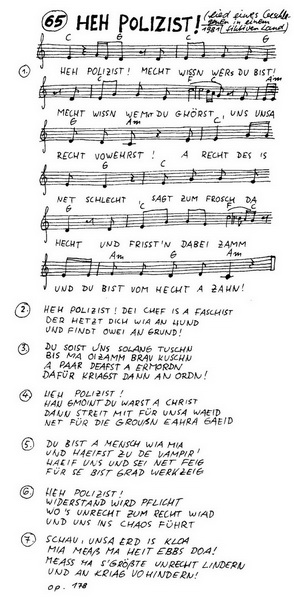 65 HEH POLIZIST! (Lied eines
in einem
1981 fiktiven Land)
C G C G
1. HEH POLIZIST! MECHT WISSN WERS DU BIST!
C F C Am
MECHT WISSN WEMST DU GHÖRST, UNS UNSA
G C Am
RECHT VOWEHRST! A RECHT DES IS
G C F C
NET SCHLECHT, SAGT ZUM FROSCH DA
G C Am
HECHT UND FRISST'N DABEI ZAMM
Am G Am
UND DU BIST VOM HECHT A ZAHN!
2. HEH POLIZIST! DEI CHEF IS A FASCHIST
DER HETZT DICH WIA AN HUND
UND FINDT OWEI AN GRUND!
3. DU SOIST UNS SOLANG TUSCHN
BIS MA OIZAMM BRAV KUSCHN
A PAAR DEAFST A ERMORDN
DAFÜR KRIAGST DANN AN ORDN!
4. HEH POLIZIST!
HAN GMOINT DU WARST A CHRIST
DANN STREIT MIT FÜR UNSA WAEID
NET FÜR DIE GROUßN EAHRA GAEID
5. DU BIST A MENSCH WIA MIA
UND HAEIFST ZU DE VAMPIR'
HAEIF UNS UND SEI NET FEIG
FÜR SE BIST GRAD WERKZEIG
6. HEH POLIZIST!
WIDERSTAND WIRD PFLICHT
WO'S UNRECHT ZUM RECHT WIAD
UND UNS INS CHAOS FÜHRT
7. SCHAU, UNSA ERD IS KLOA
MIA MEAß MA HEIT EBBS DOA!
MEASS MA S'GRÖßTE UNRECHT LINDERN
UND AN KRIAG VOHINDERN!
OP. 178